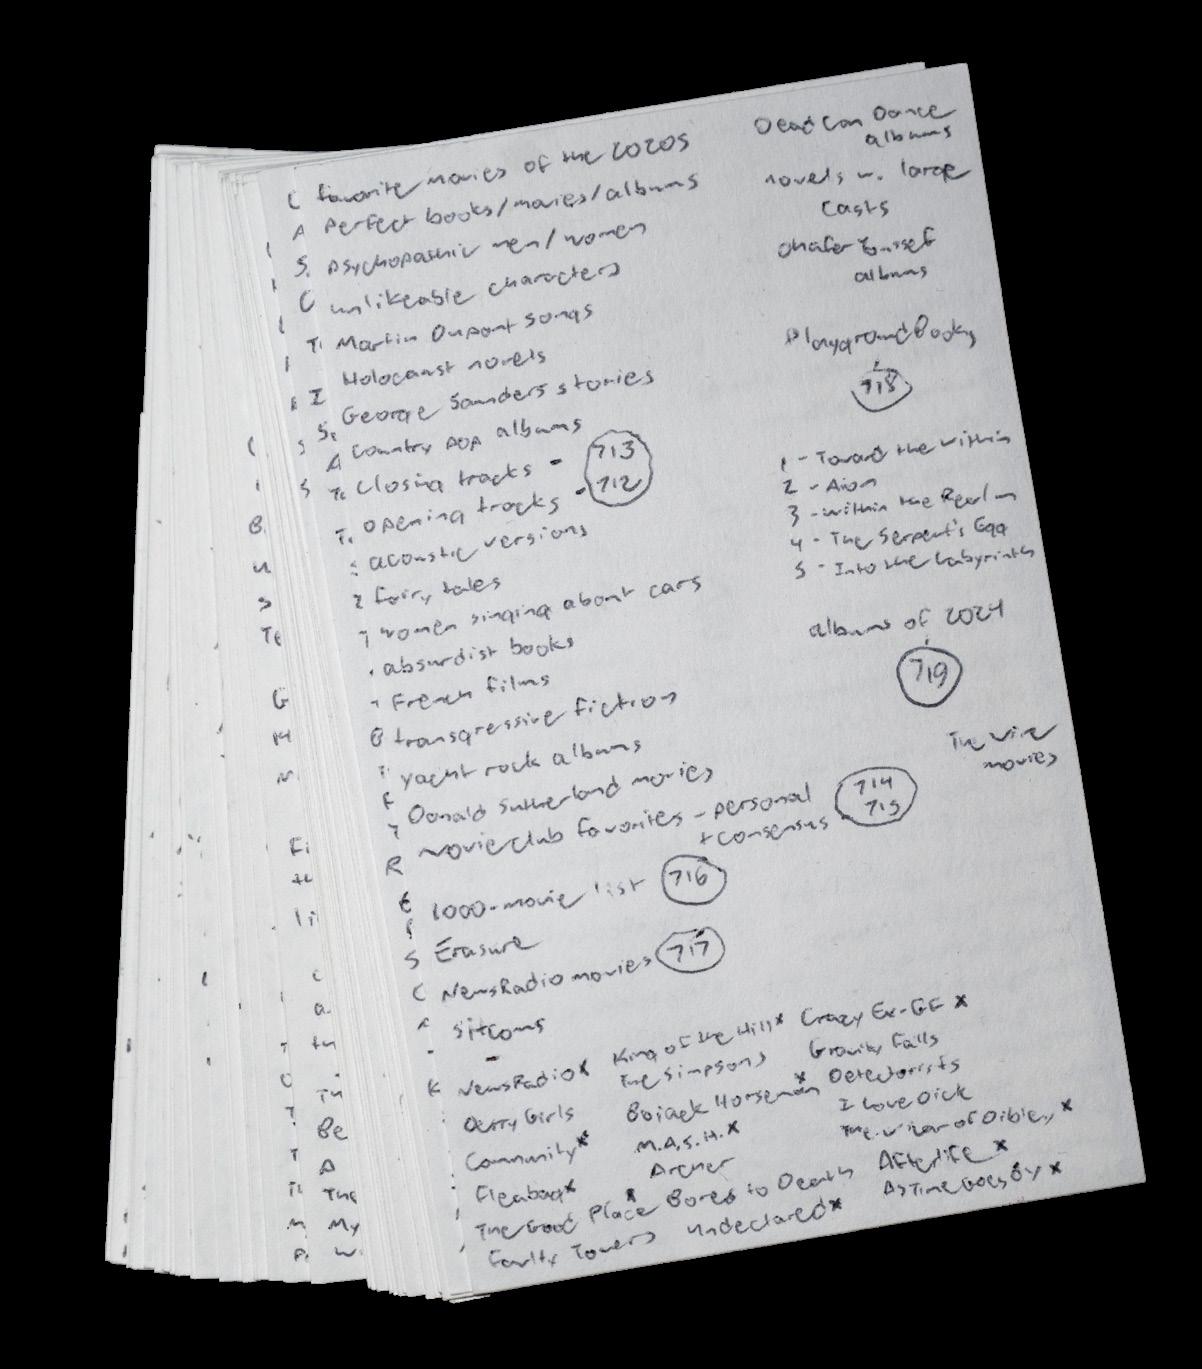 favorite movies of the 2020s
perfect books/movies/albums
psychopathic men/women
unlikeable characters
Martin Dupont songs
Holocaust novels
George Saunders stories
country pop albums
closing tracks - 713
opening tracks - 712
acoustic versions
fairy tales
women singing about cars
absurdist books
French films
transgressive fiction
yacht rock albums
Donald Sutherland movies
movie club favorites - personal 714
+ consensus 715
1000-movie list 716
Erasure
NewsRadio movies 717
sitcoms
-
NewsRadio x
Derry Girls
Community x
Fleabag x
The Good Place x
Fawlty Towers
King of the Hill x
The Simpsons
Bojack Horseman x
M.A.S.H. x
Archer
Bored to Death
Undeclared x
Crazy Ex-GF x
Gravity Falls
Detectorists
I Love Dick
The Vicar of Dibley x
Afterlife x
As Time Goes By x
Dead Can Dance
albums
novels w. large
casts
Dhafer Youssef
albums
Playground Books
718
1 - Toward the Within
2 - Aion
3 - Within the Realm
4 - The Serpent's Egg
5 - Into the Labyrinth
albums of 2024
719
The Wire
movies